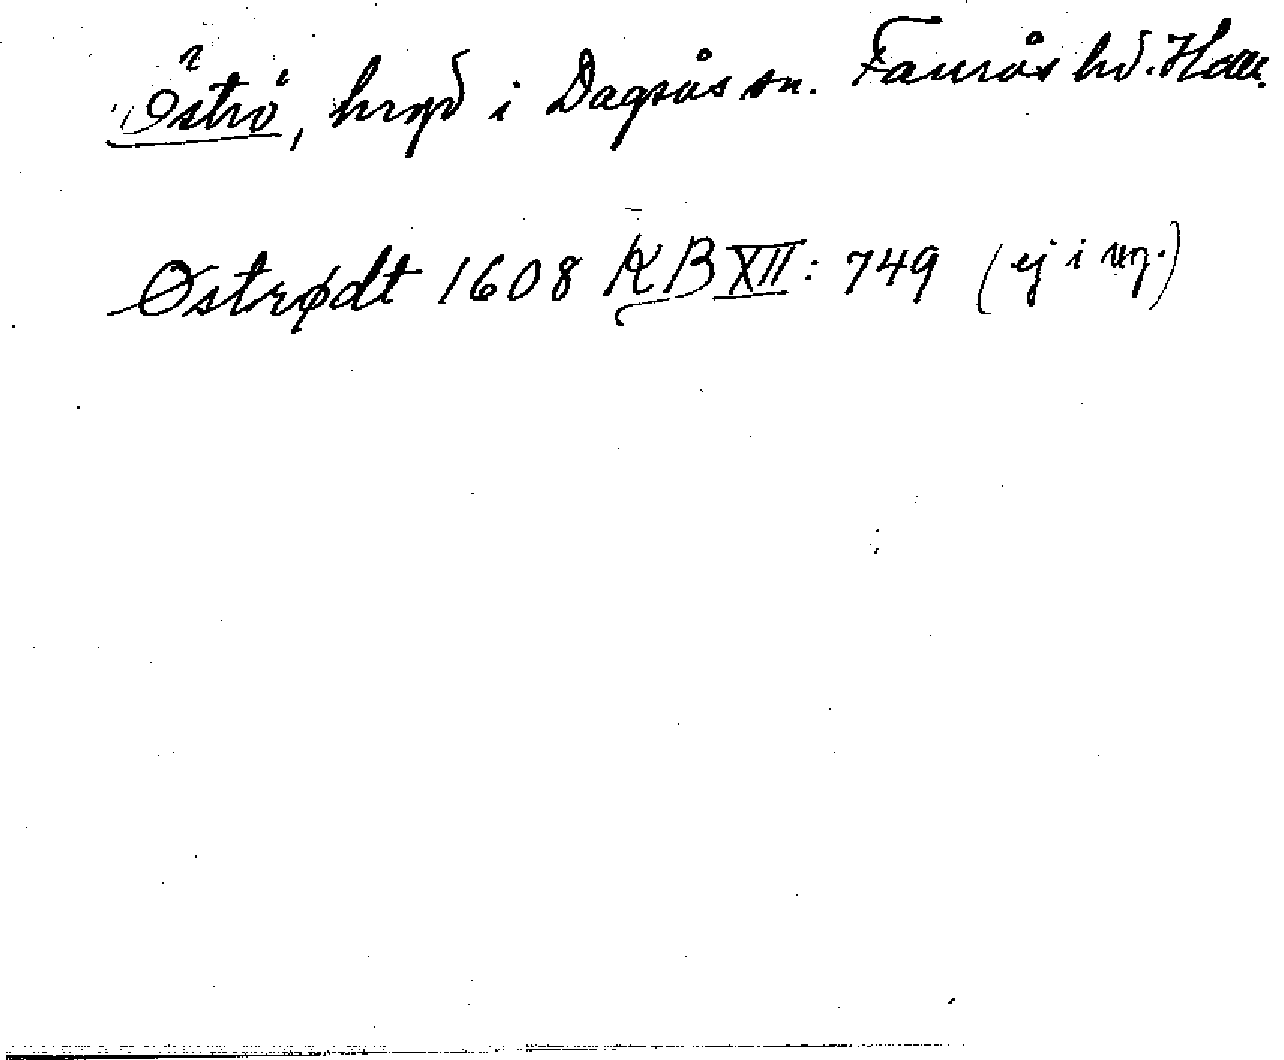 Öströ, hrgd i Dagsås sn. Faurås hd. Hall.
Østrødt 1608 KB XII: 749 (ej i reg.)